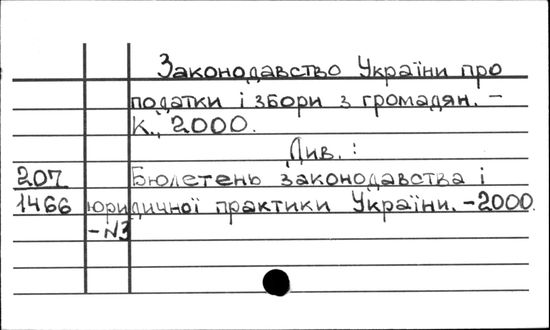 Законодавство України про
податки і збори з громадян. –
К., 2000.
Див.:
207 Бюлетень законодавства і
1466 юридичної практики України. – 2000.
– №3